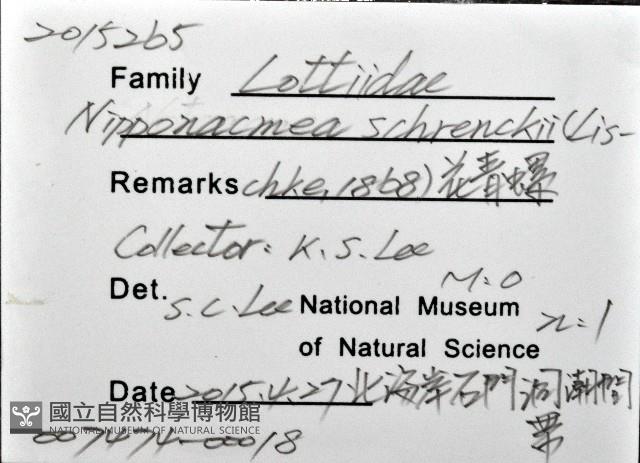 2015265
Family Lottiidae
Nipponacmea schrenckii (Lis-
Remarks chke, 1868) 花青螺
Collector: K. S. Lee
M: 0
Det. S. C. Lee National Museum n=1
of Natural Science
Date 2015.4.27 北海岸石門洞潮間
帶
國立自然科學博物館
NATIONAL MUSEUM OF NATURAL SCIENCE
007474-00018